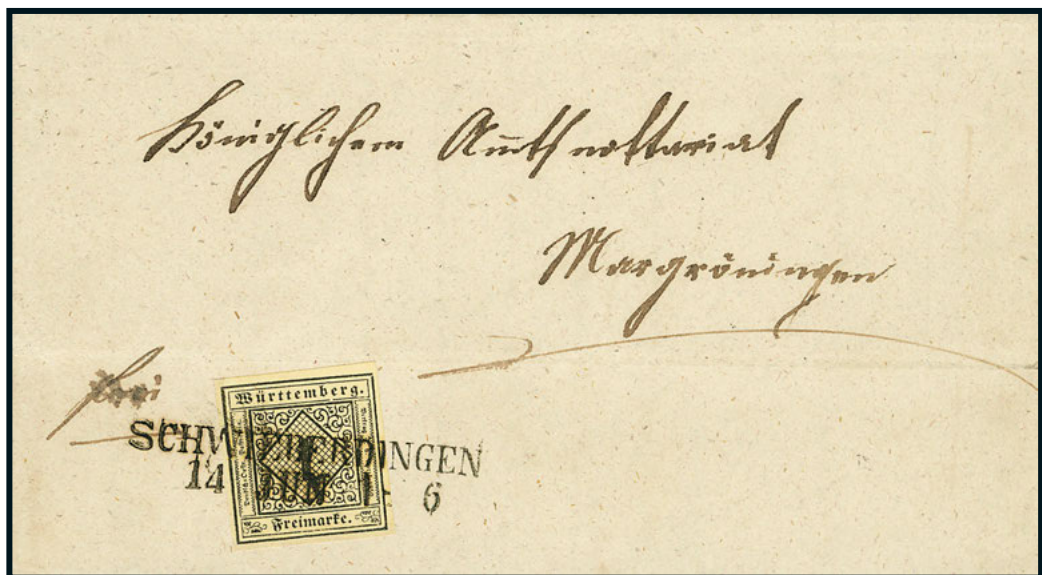 Königlichem Amtsnottariat
Margröningen
frei
Württemberg.
1
Freimarke.
SCHWIEBERDINGEN
14 JUN 6